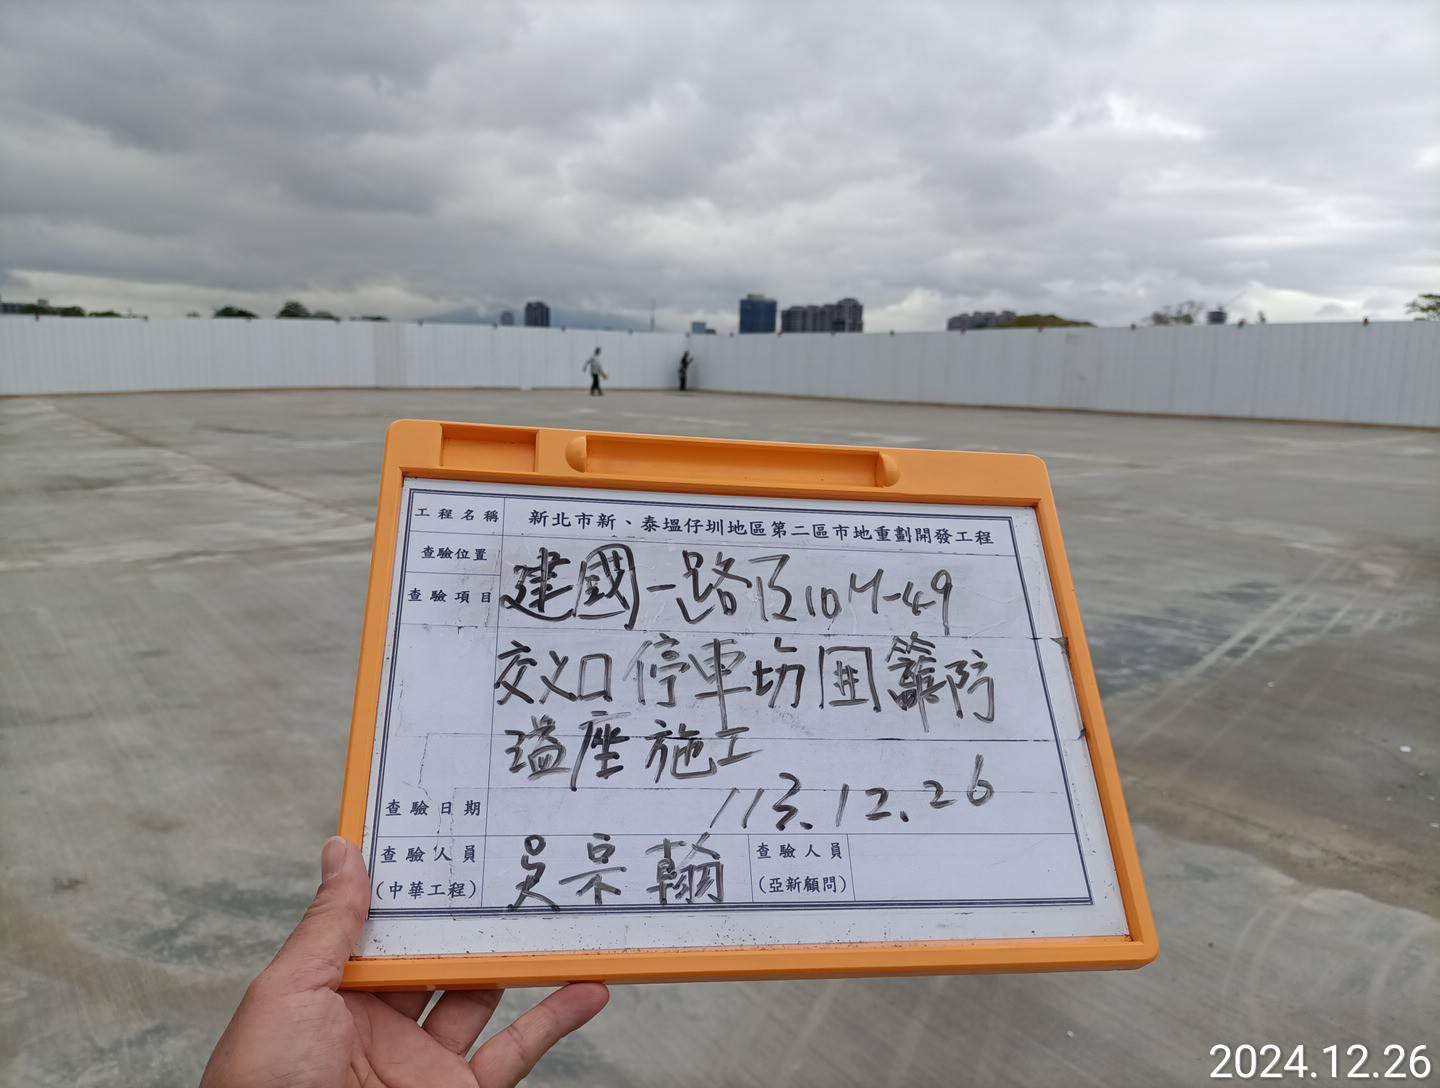 工程名稱 新北市新、泰塭仔圳地區第二區市地重劃開發工程
查驗位置
查驗項目 建國一路及10M-49
交叉口停車場囲籬防
溢座施工
查驗日期 113.12.26
查驗人員 吳宗翰 查驗人員
(中華工程) (亞新顧問)
2024.12.26